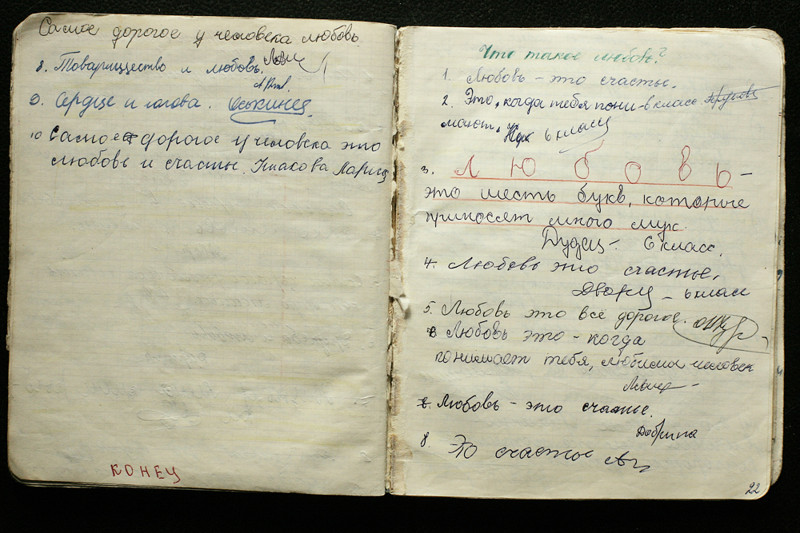 Самое дорогое у человека любовь.
8. Товарищество и любовь.
9. Сердце и голова.
10 Самое дорогое у человека это
любовь и счастье. Ушакова Лариса
КОНЕЦ
Что такое любовь?
1. Любовь - это счастье.
2. Это, когда тебя пони-
мают. 6 класс
3. ЛЮБОВЬ -
это шесть букв, которые
приносят много мук.
6 класс.
4. Любовь это счастье.
6 класс
5. Любовь это всё дорогое.
Любовь это - когда
понимает тебя, любимый человек
Любовь - это счастье.
Добрина
8. Это счастье
22